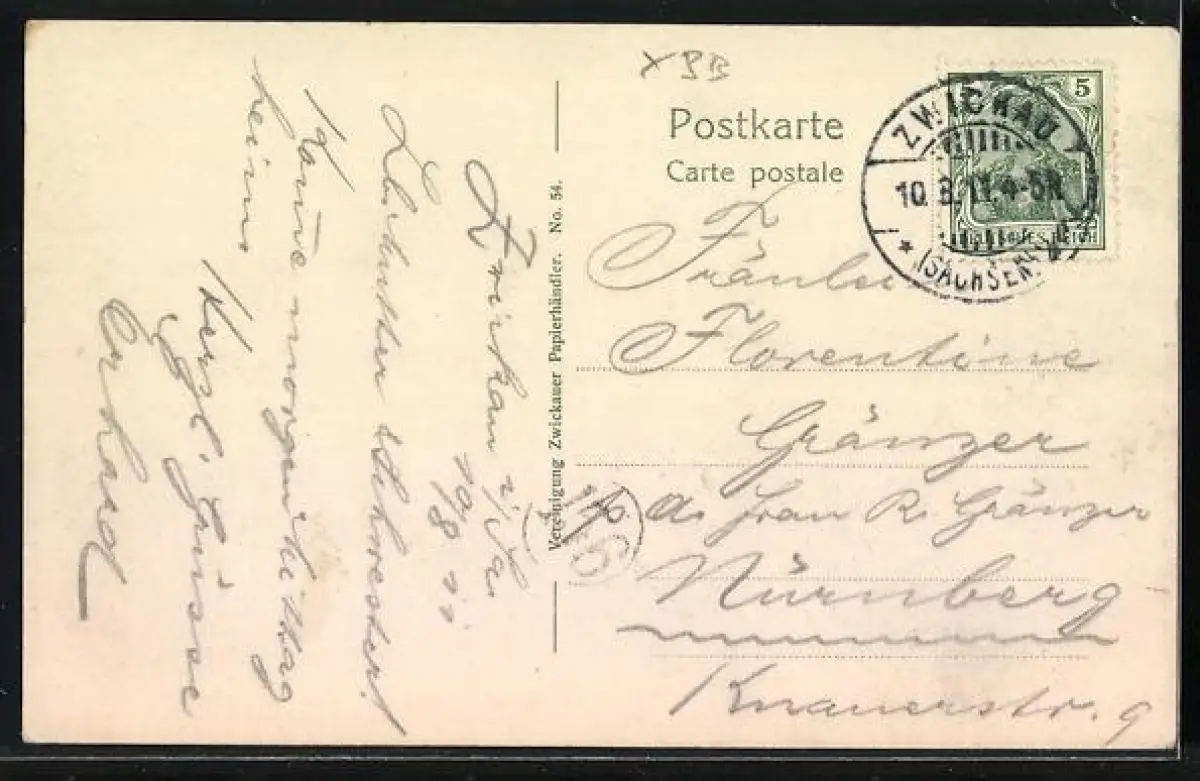 × BB
Postkarte
Carte postale
5
DEUTSCHES REICH
ZWICKAU
10.8.11.4-5N.
(SACHSEN)
Fräulein
Florentine
Gränzer
p. a. Frau R. Gränzer
Nürnberg
Knauerstr. 9
Vereinigung Zwickauer Papierhändler. No. 54.
Zwickau i/Sa
10/8 11
Schwester!
Komme morgen Mittag
heim.
Herzl. Grüsse
Erhard